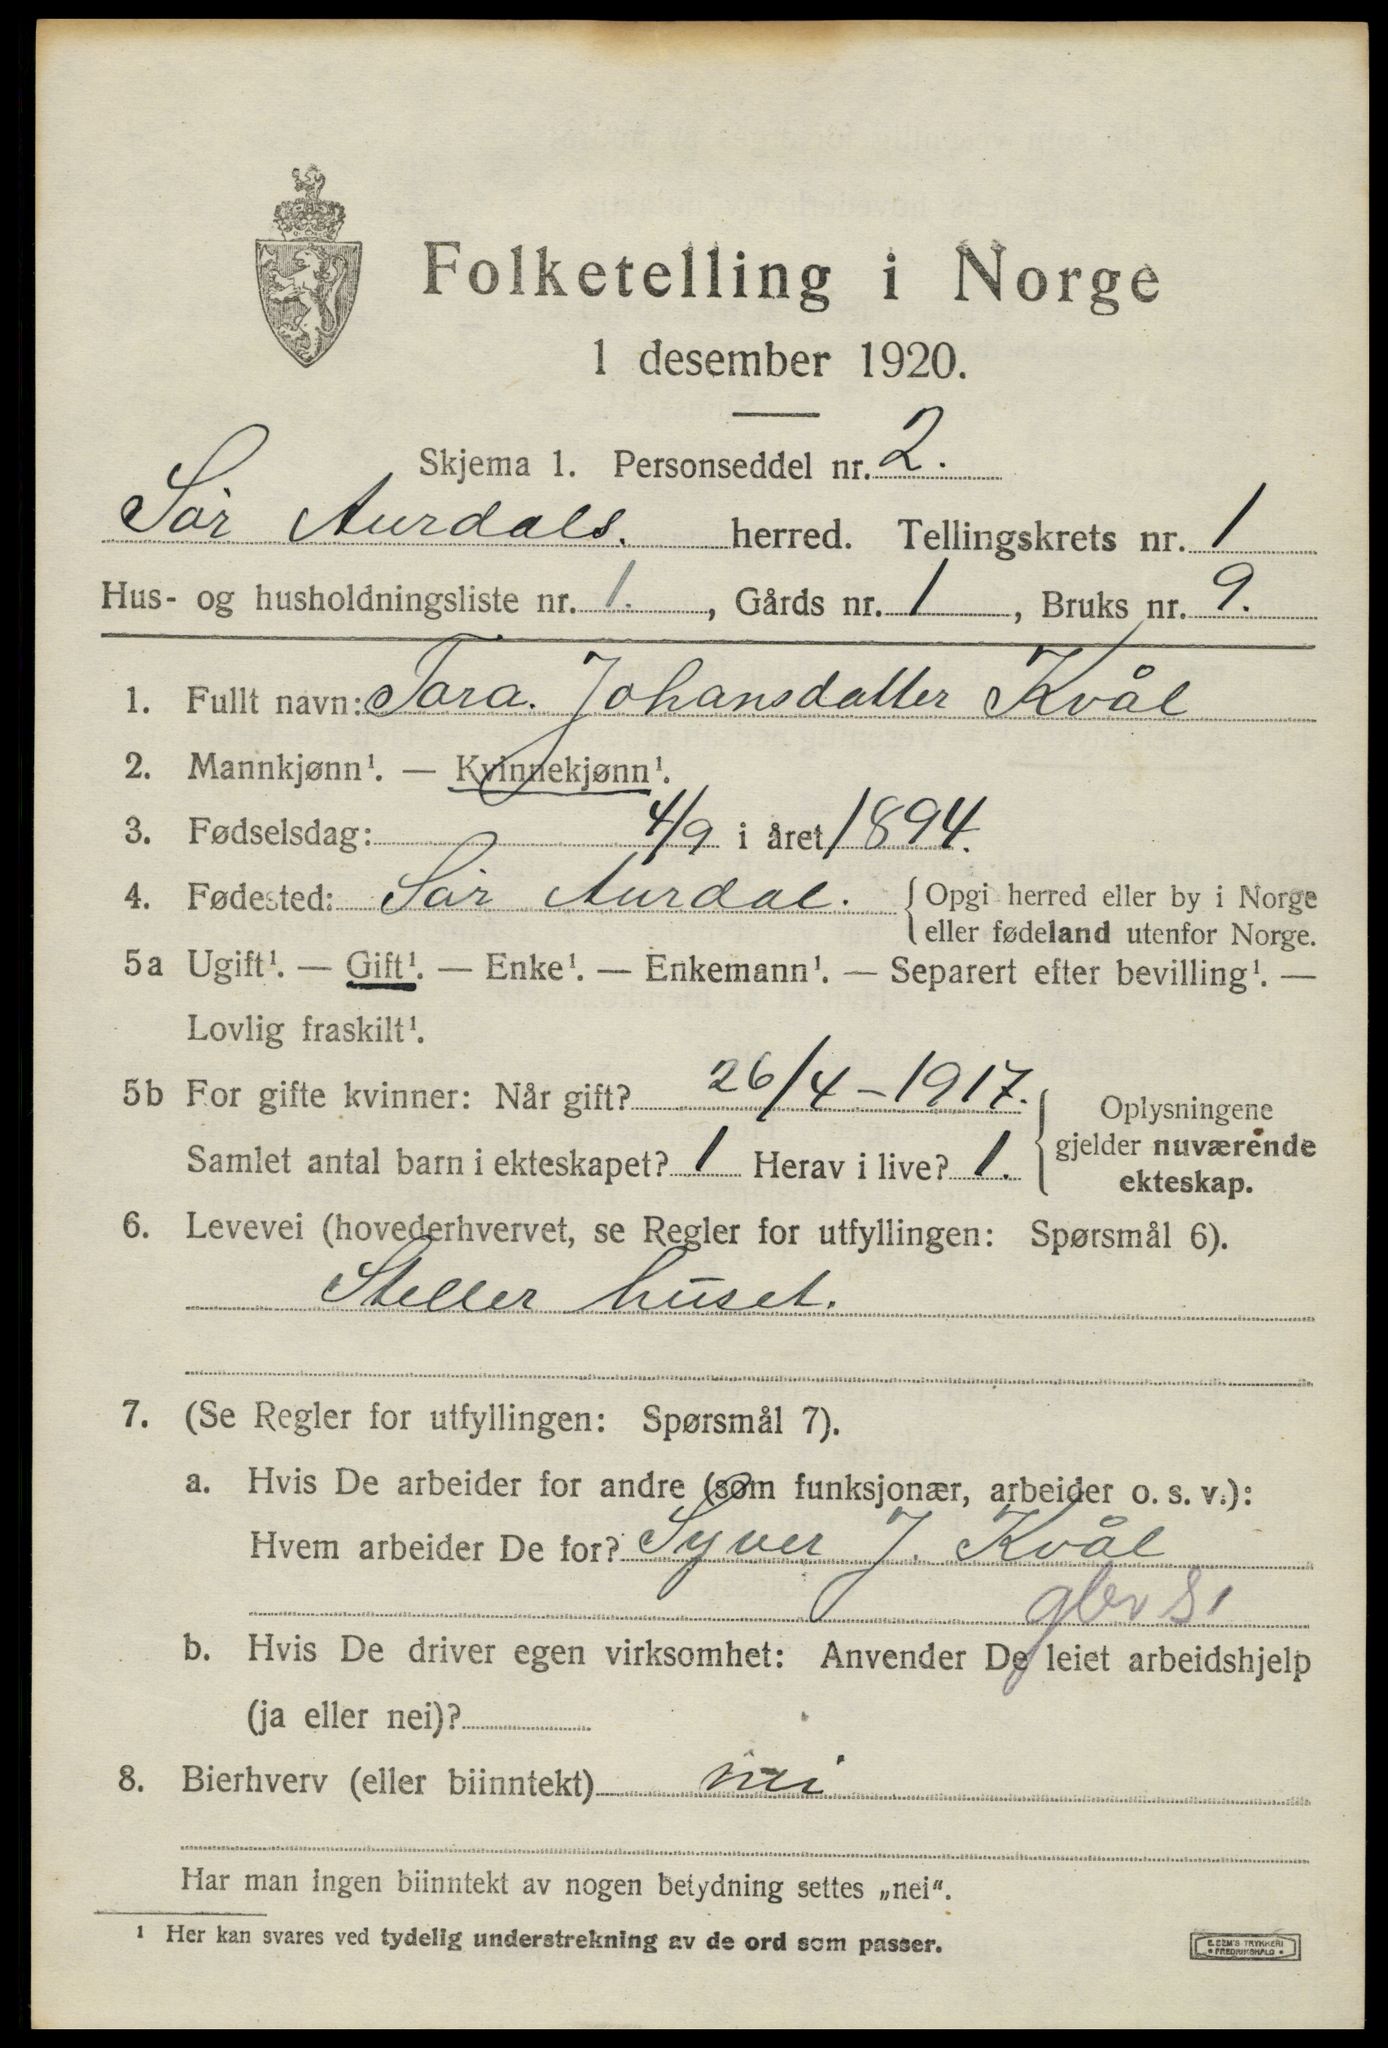 Folketelling i Norge
1 desember 1920.
Skjema 1. Personseddel nr. 2.
Sør Aurdals. herred. Tellingskrets nr. 1
Hus- og husholdningsliste nr. 1. , Gårds nr. 1 , Bruks nr. 9.
1. Fullt navn: Tora. Johansdatter Kvål
2. Mannkjønn¹. — Kvinnekjønn¹.
3. Fødselsdag: 4/9 i året 1894.
4. Fødested: Sør Aurdal. { Opgi herred eller by i Norge
eller fødeland utenfor Norge.
5a Ugift¹. — Gift¹. — Enke¹. — Enkemann¹. — Separert efter bevilling¹. —
Lovlig fraskilt¹.
5b For gifte kvinner: Når gift? 26/4 – 1917. { Oplysningene
gjelder nuværende
ekteskap.
Samlet antal barn i ekteskapet? 1 Herav i live? 1.
6. Levevei (hovederhvervet, se Regler for utfyllingen: Spørsmål 6).
Steller huset.
7. (Se Regler for utfyllingen: Spørsmål 7).
a. Hvis De arbeider for andre (som funksjonær, arbeider o. s. v.):
Hvem arbeider De for? Syver J. Kvål
b. Hvis De driver egen virksomhet: Anvender De leiet arbeidshjelp
(ja eller nei)?
8. Bierhverv (eller biinntekt) nei
Har man ingen biinntekt av nogen betydning settes „nei“.
¹ Her kan svares ved tydelig understrekning av de ord som passer.
E. SEM'S TRYKKERI
• FREDRIKSHALD •